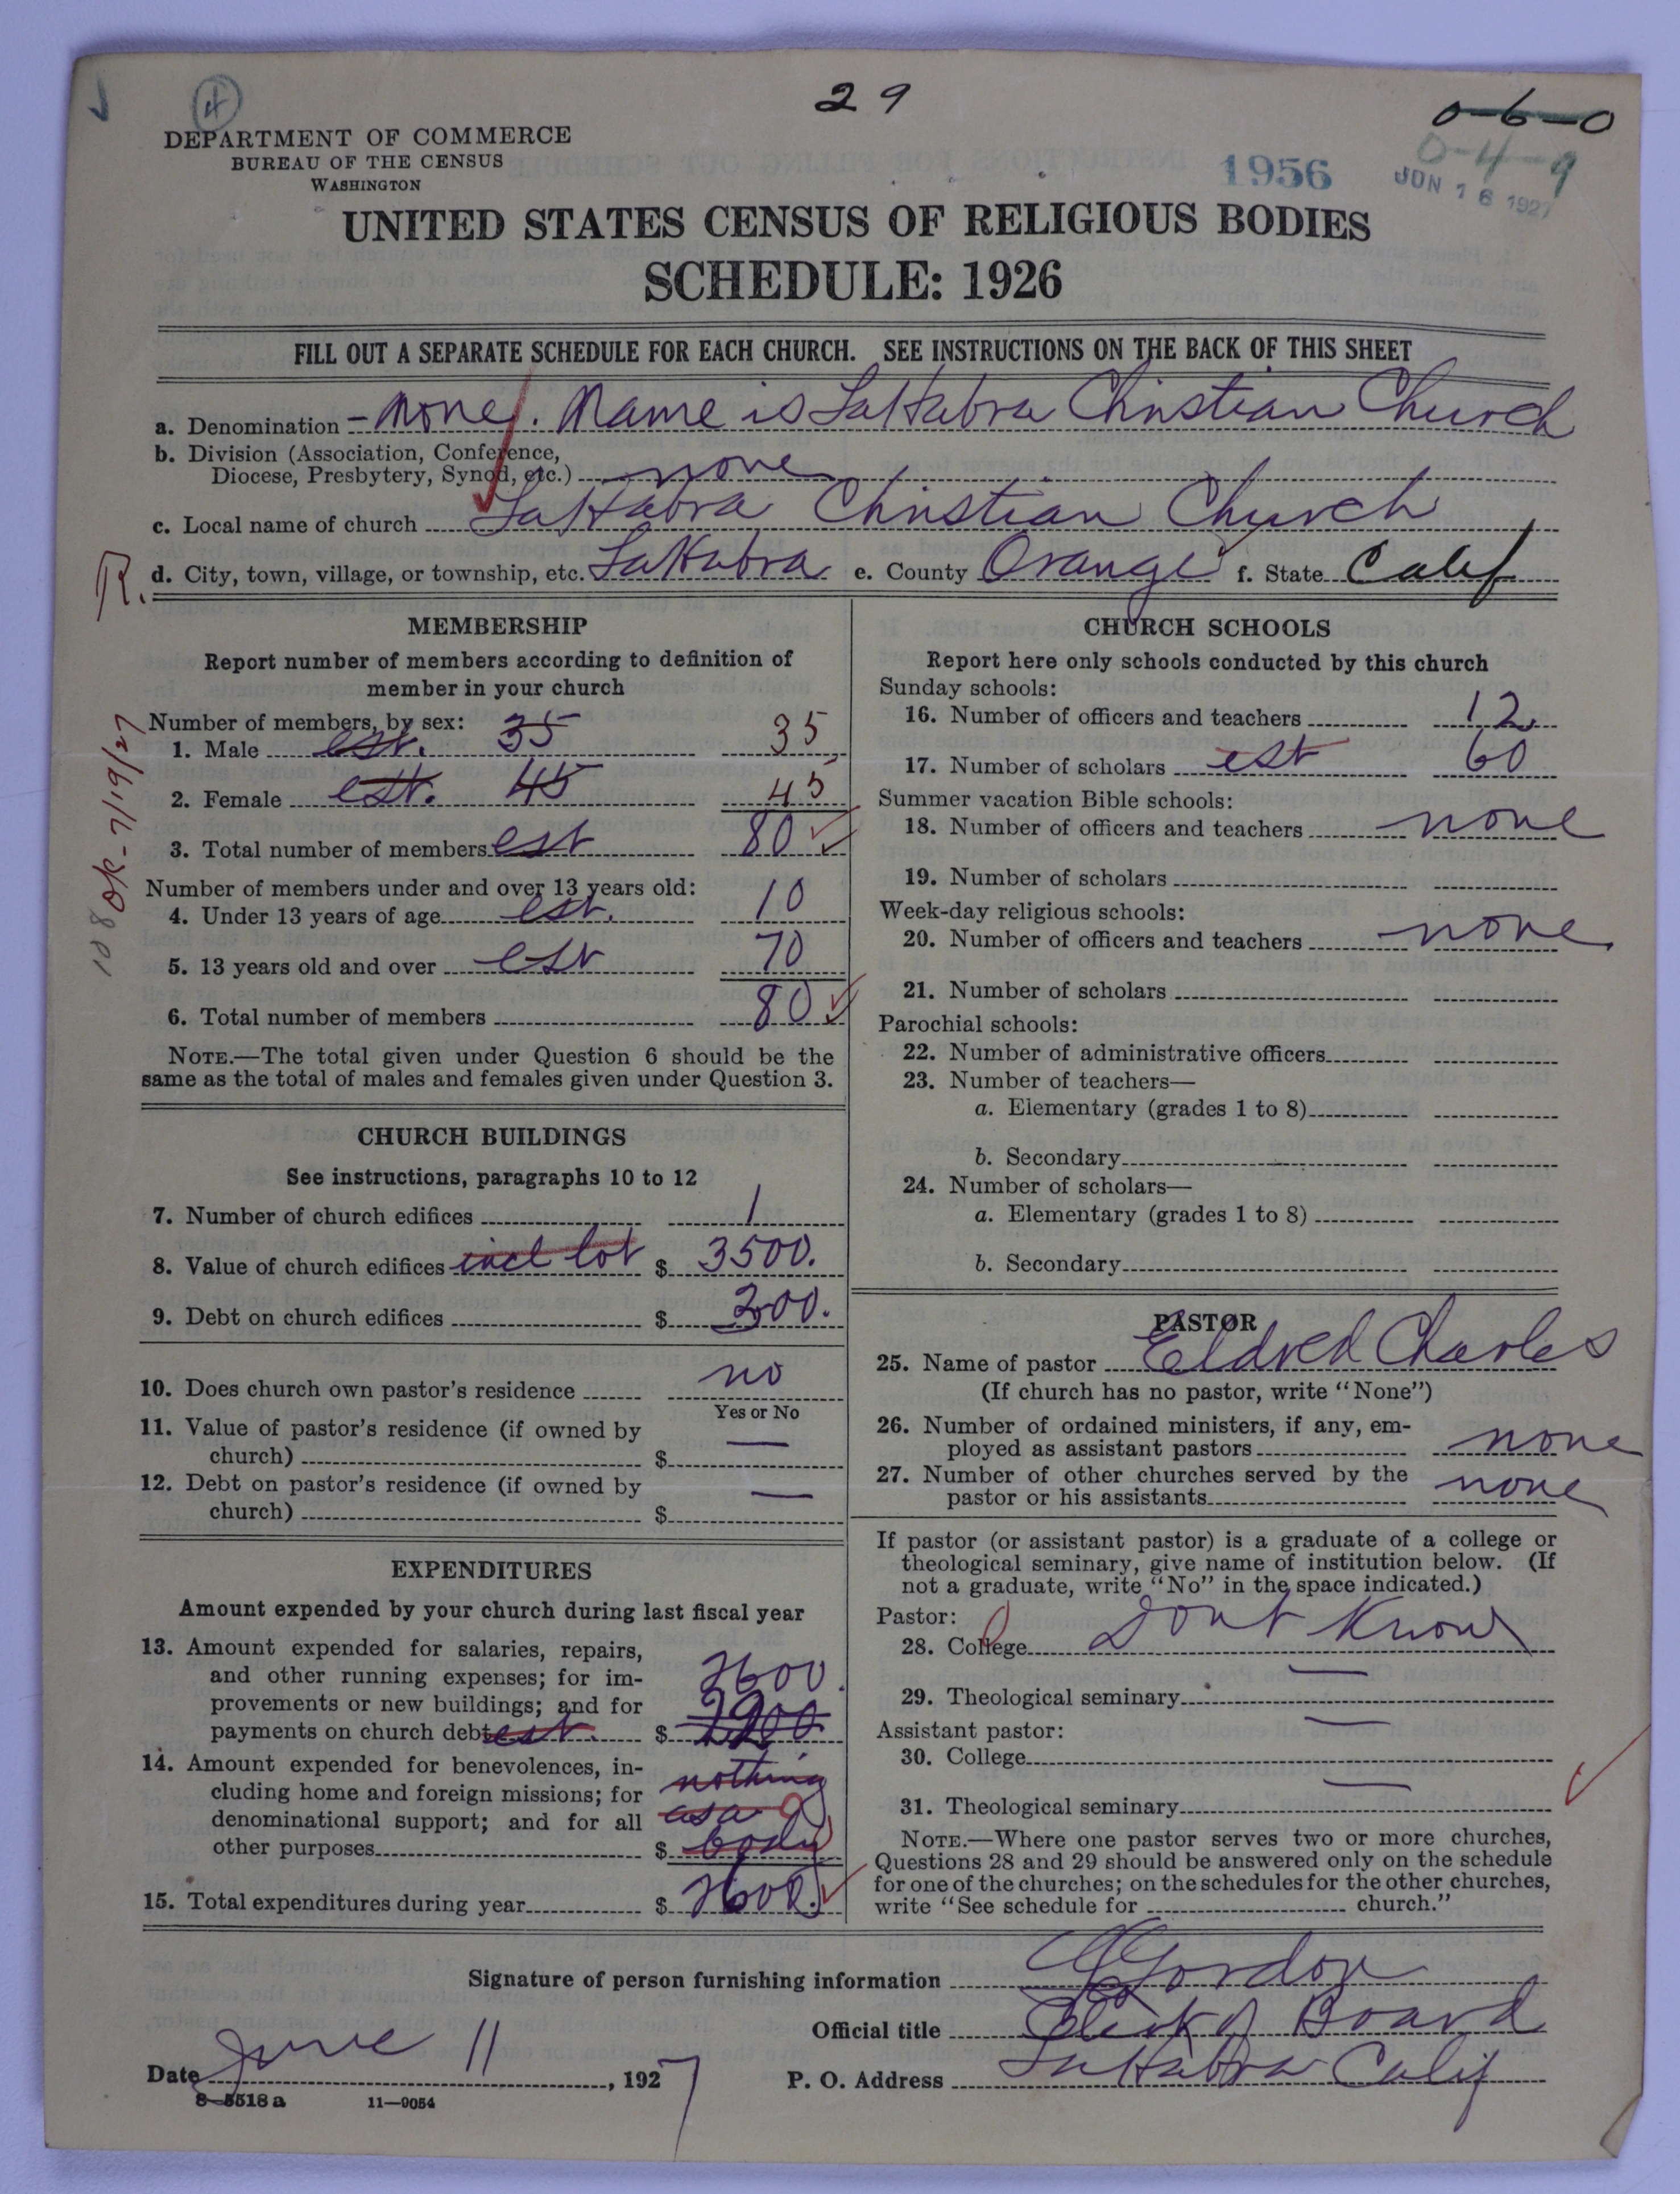 4
29
0-6-0
0-4-9
DEPARTMENT OF COMMERCE
BUREAU OF THE CENSUS
WASHINGTON
1956
JUN 16 1927
UNITED STATES CENSUS OF RELIGIOUS BODIES
SCHEDULE: 1926
FILL OUT A SEPARATE SCHEDULE FOR EACH CHURCH. SEE INSTRUCTIONS ON THE BACK OF THIS SHEET
a. Denomination - none. Name is LaHabra Christian Church
b. Division (Association, Conference,
Diocese, Presbytery, Synod, etc.) none
c. Local name of church LaHabra Christian Church
R. d. City, town, village, or township, etc. LaHabra e. County Orange f. State Calif
MEMBERSHIP
Report number of members according to definition of
member in your church
Number of members, by sex:
1. Male est. 35 35
2. Female est. 45 45
3. Total number of members est 80
Number of members under and over 13 years old:
4. Under 13 years of age est. 10
5. 13 years old and over est 70
6. Total number of members 80
NOTE.—The total given under Question 6 should be the
same as the total of males and females given under Question 3.
OK-7/19/27
108
CHURCH BUILDINGS
See instructions, paragraphs 10 to 12
7. Number of church edifices 1
8. Value of church edifices incl lot $ 3500.
9. Debt on church edifices $ 300.
10. Does church own pastor's residence no
Yes or No
11. Value of pastor's residence (if owned by
church) $ —
12. Debt on pastor's residence (if owned by
church) $ —
EXPENDITURES
Amount expended by your church during last fiscal year
13. Amount expended for salaries, repairs,
and other running expenses; for im-
provements or new buildings; and for 2600.
payments on church debt est. $
14. Amount expended for benevolences, in-
cluding home and foreign missions; for nothing
denominational support; and for all as a
other purposes $ body
15. Total expenditures during year $ 2600.
CHURCH SCHOOLS
Report here only schools conducted by this church
Sunday schools:
16. Number of officers and teachers 12
17. Number of scholars est 60
Summer vacation Bible schools:
18. Number of officers and teachers none
19. Number of scholars
Week-day religious schools:
20. Number of officers and teachers none.
21. Number of scholars
Parochial schools:
22. Number of administrative officers
23. Number of teachers—
a. Elementary (grades 1 to 8)
b. Secondary
24. Number of scholars—
a. Elementary (grades 1 to 8)
b. Secondary
PASTOR
25. Name of pastor Eldred Charles
(If church has no pastor, write "None")
26. Number of ordained ministers, if any, em-
ployed as assistant pastors none
27. Number of other churches served by the
pastor or his assistants none
If pastor (or assistant pastor) is a graduate of a college or
theological seminary, give name of institution below. (If
not a graduate, write "No" in the space indicated.)
Pastor:
28. College Dont Know
29. Theological seminary —
Assistant pastor:
30. College —
31. Theological seminary —
NOTE.—Where one pastor serves two or more churches,
Questions 28 and 29 should be answered only on the schedule
for one of the churches; on the schedules for the other churches,
write "See schedule for church."
Signature of person furnishing information Gordon
Official title Clerk of Board
Date June 11, 1927 P. O. Address LaHabra Calif
8-5518a 11-9054